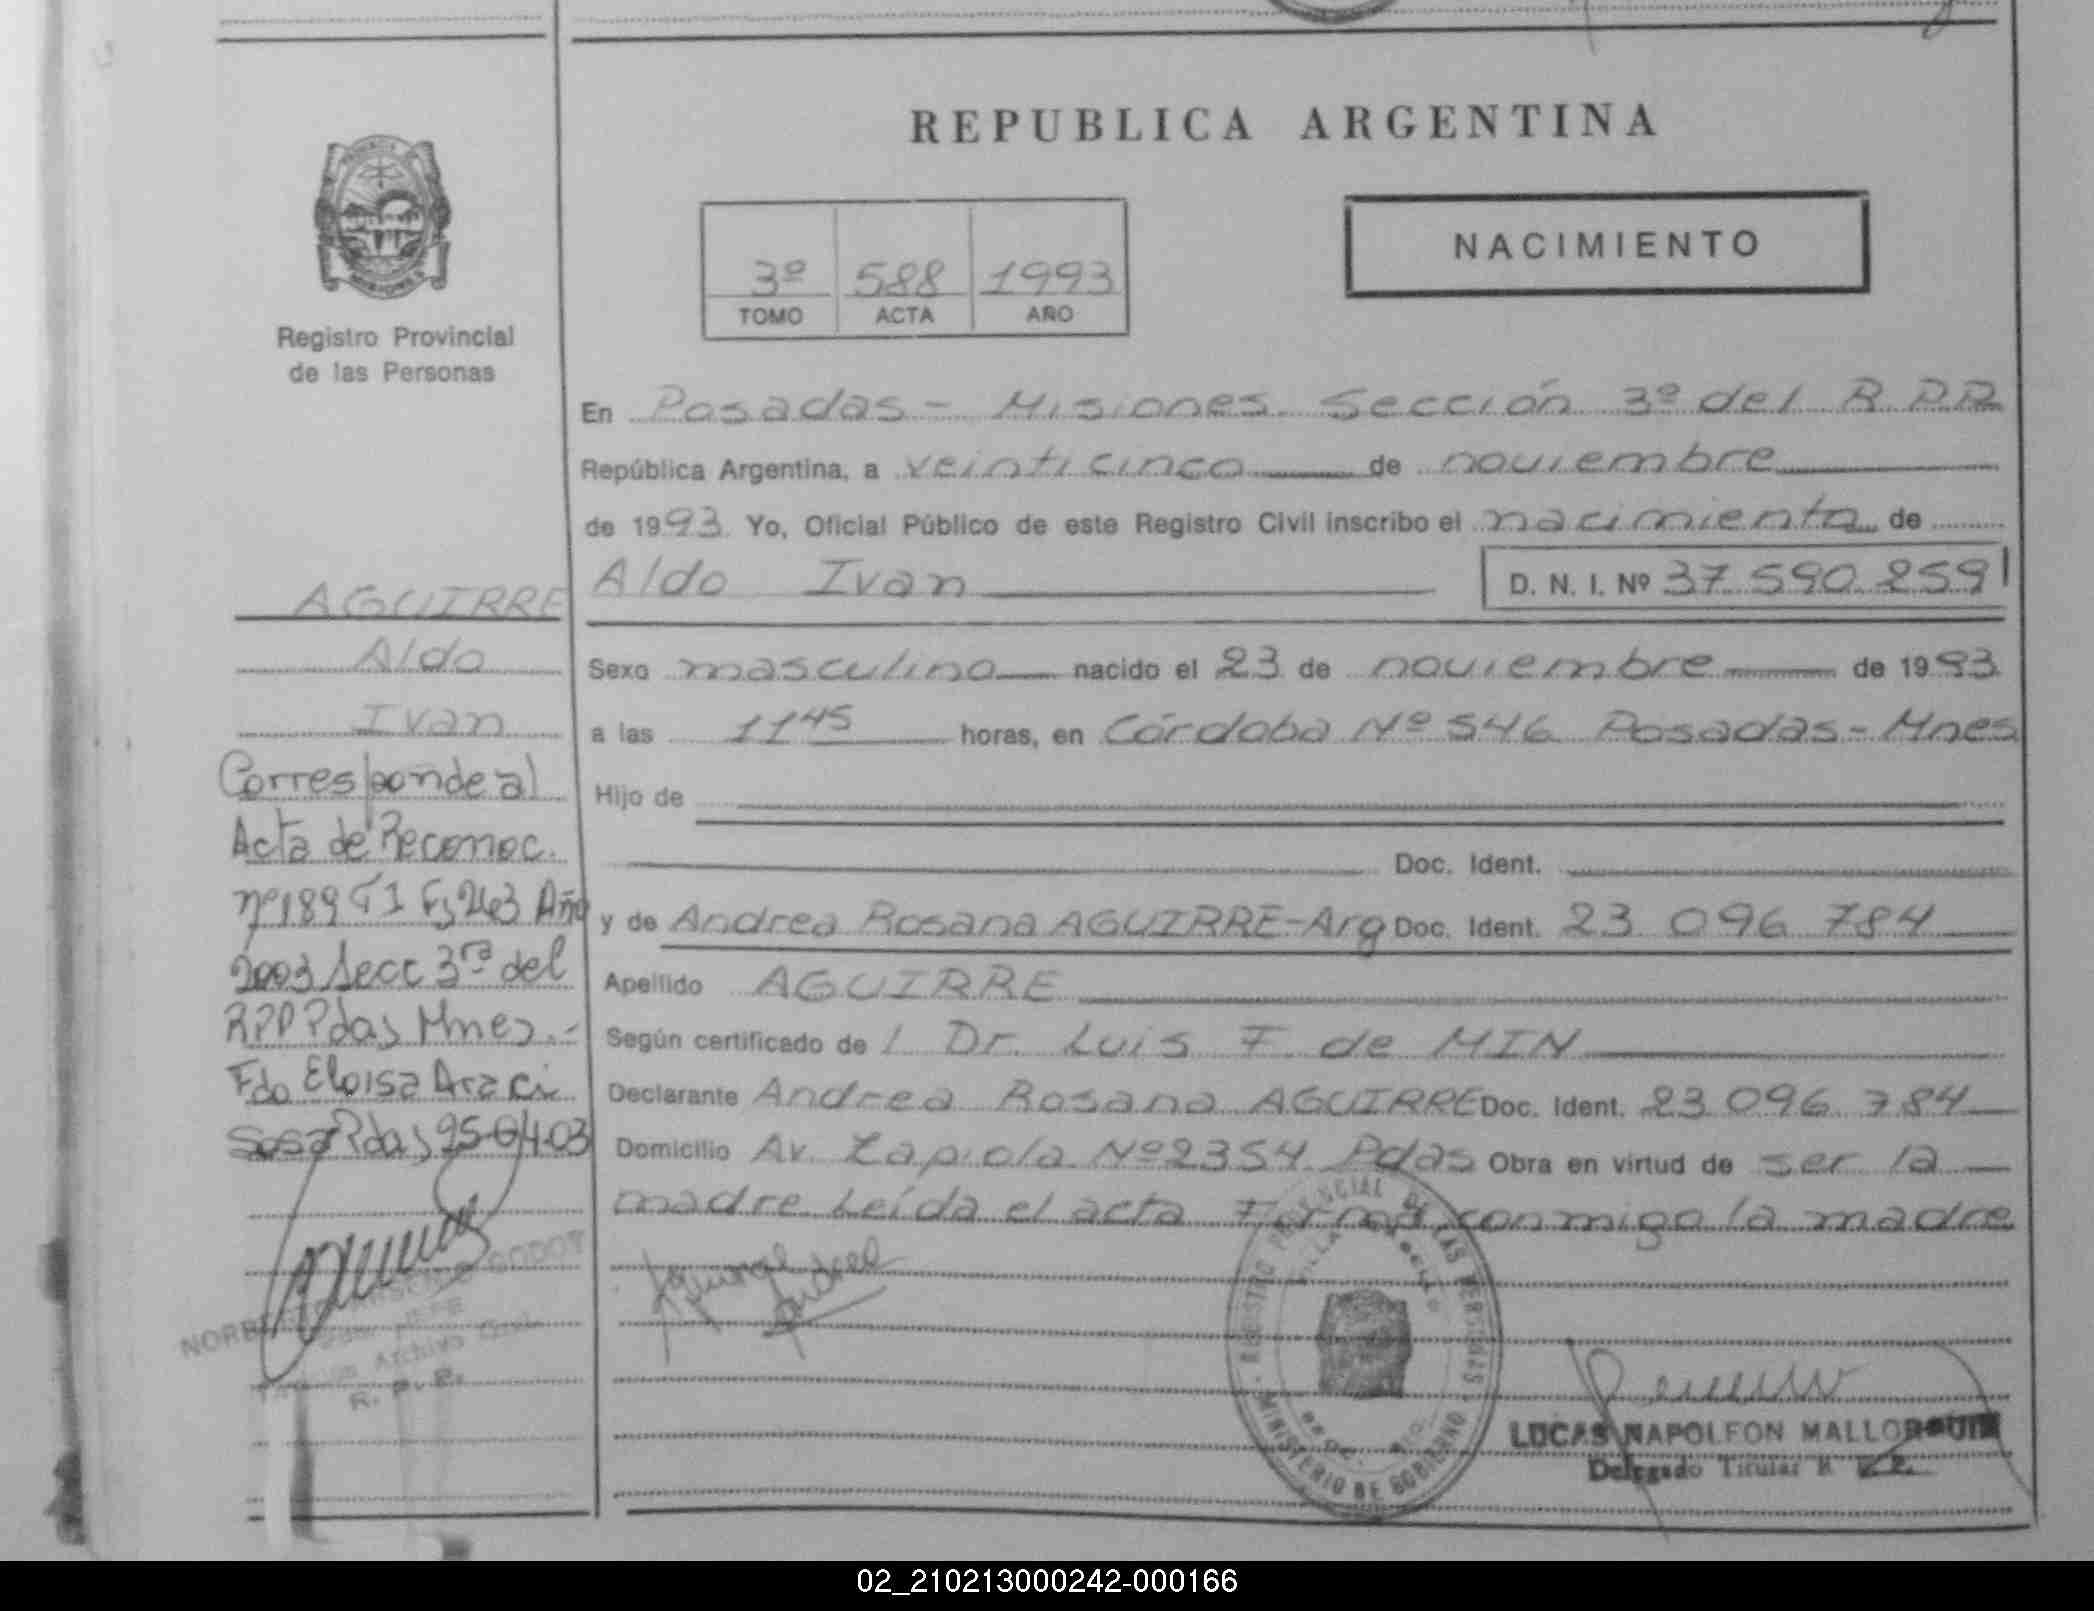 REPUBLICA ARGENTINA
NACIMIENTO
3º 588 1993
TOMO ACTA AÑO
Registro Provincial
de las Personas
AGUIRRE
Aldo
Ivan
Corresponde al
Acta de Reconoc.
nº 189 T1 Fs 243 Año
2003 Secc 3ra del
RPP Pdas Mnes.-
Fdo Eloisa Araci
Sosa Pdas 25-04-03
NORBERTO GODOY
JEFE
Archivo Gral.
R. P. P.
En Posadas - Misiones Sección 3º del R.P.P.
República Argentina, a veinticinco de noviembre
de 1993. Yo, Oficial Público de este Registro Civil inscribo el nacimiento de
Aldo Ivan D. N. I. Nº 37.590.259
Sexo masculino nacido el 23 de noviembre de 1993
a las 11 45 horas, en Córdoba Nº 546 Posadas - Mnes
Hijo de
Doc. Ident.
y de Andrea Rosana AGUIRRE-Arg Doc. Ident. 23 096 784
Apellido AGUIRRE
Según certificado de l Dr. Luis F. de MIN
Declarante Andrea Rosana AGUIRRE Doc. Ident. 23 096 784
Domicilio Av. Zapiola Nº 2354 Pdas Obra en virtud de ser la
madre Leída el acta Firma conmigo la madre
REGISTRO PROVINCIAL DE LAS PERSONAS
MINISTERIO DE GOBIERNO
LUCAS NAPOLEON MALLORQUIN
Delegado Titular R. P. P.
02_210213000242-000166